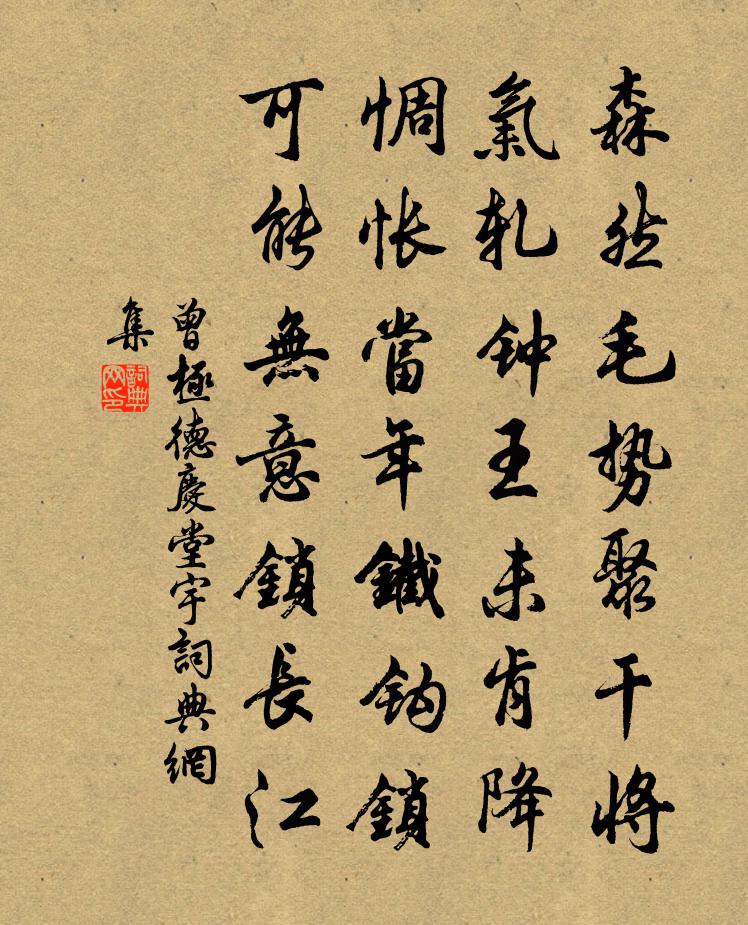 森然毛势聚干将
氣轧钟王未肯降
惆怅當年鐵鈎鎖
可能無意鎖長江
曾極德慶堂宇詞典網
集
詞典
网印